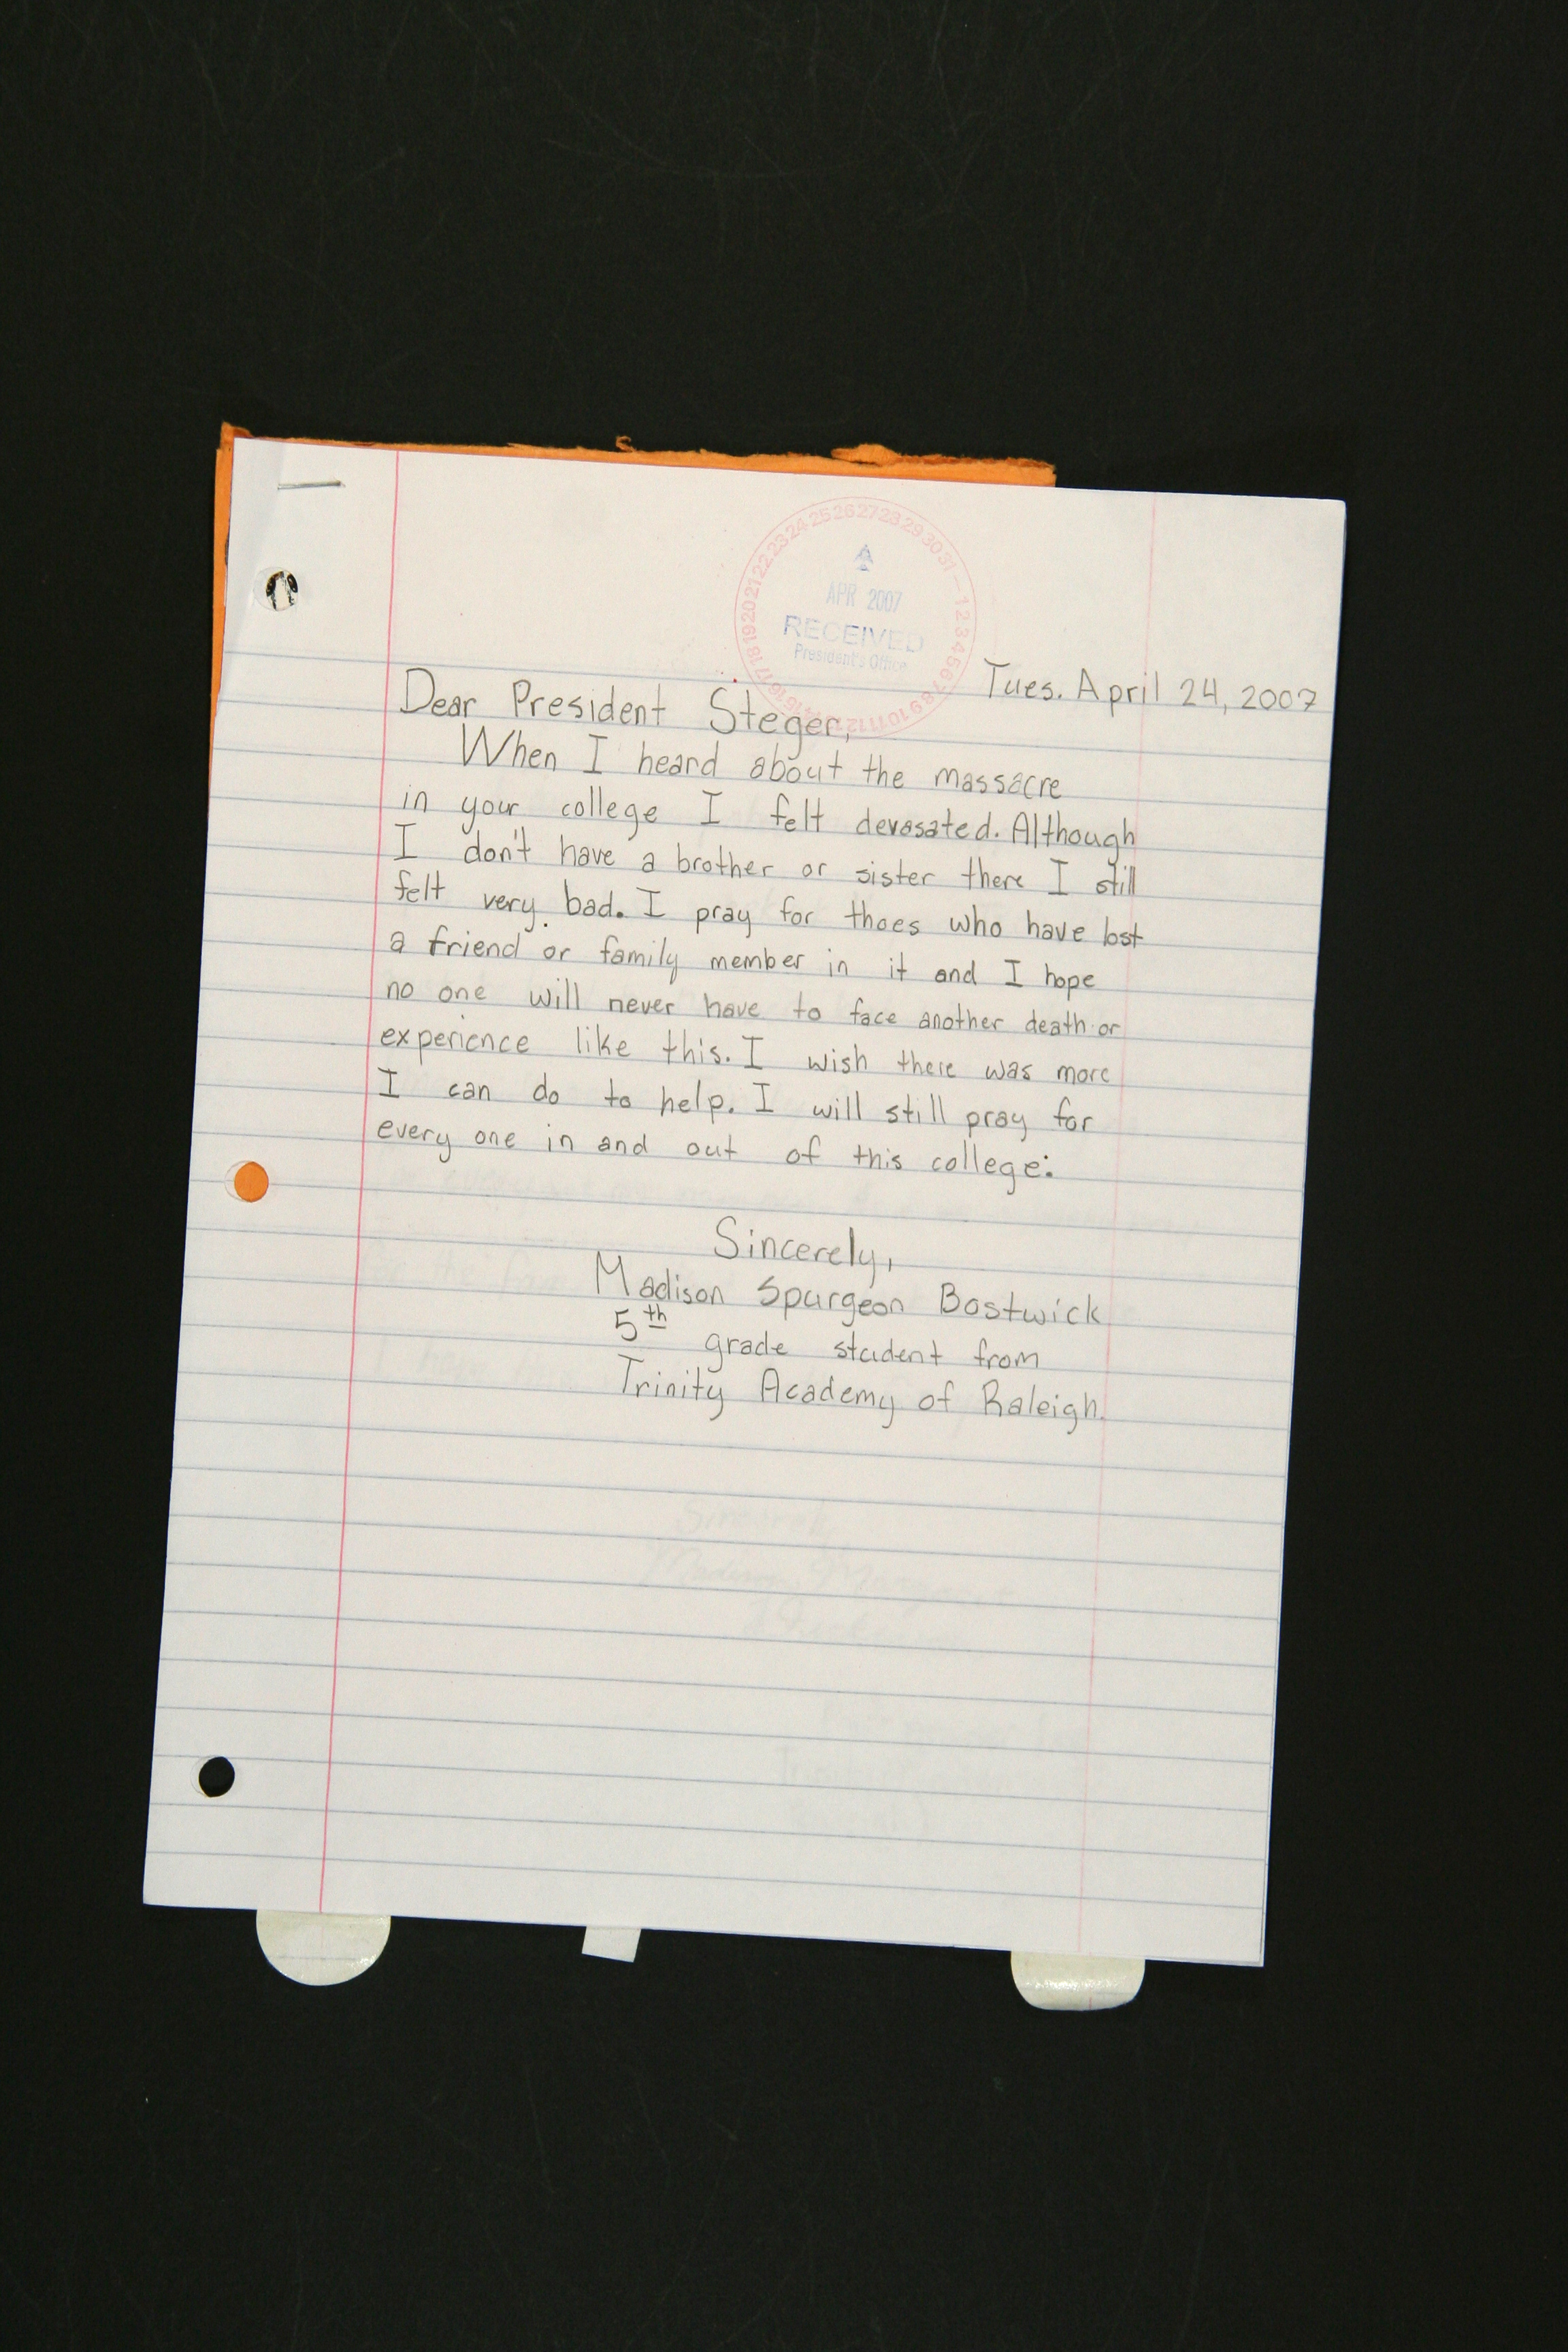 25 26 27 28 29 30 31 1 2 3 4 5 6 7 8 9 10 11 12 13 14 15 16 17 18 19 20 21 22 23 24
APR 2007
RECEIVED
President's Office
Tues. April 24, 2007
Dear President Steger,
When I heard about the massacre
in your college I felt devasated. Although
I don't have a brother or sister there I still
felt very bad. I pray for thoes who have lost
a friend or family member in it and I hope
no one will never have to face another death or
experience like this. I wish there was more
I can do to help. I will still pray for
every one in and out of this college.
Sincerely,
Madison Spurgeon Bostwick
5th grade student from
Trinity Academy of Raleigh.